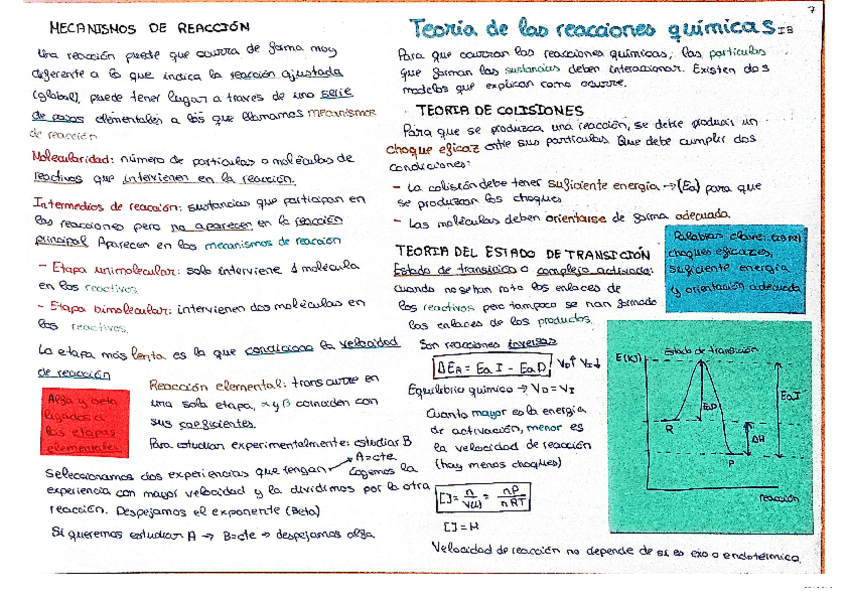 7
MECANISMOS DE REACCIÓN
Una reacción puede que ocurra de forma muy
diferente a lo que indica la reacción ajustada
(global), puede tener lugar a traves de una serie
de pasos elementales a los que llamamos mecanismos
de reacción
Molecularidad: número de particulas o moléculas de
reactivos que intervienen en la reacción.
Intermedios de reacción: sustancias que participan en
las reacciones pero no aparecen en la reacción
principal. Aparecen en los mecanismos de reacción
- Etapa unimolecular: solo interviene 1 molécula
en los reactivos
- Etapa bimolecular: intervienen dos moléculas en
los reactivos.
La etapa más lenta es la que condiciona la velocidad
de reacción
Alfa y beta
ligados a
las etapas
elementales
Reacción elemental: transcurre en
una sola etapa, α y β coinciden con
sus coeficientes.
Para estudiar experimentalmente: estudiar B
A=cte
Seleccionamos dos experiencias que tengan Cogemos la
experiencia con mayor velocidad y la dividimos por la otra
reacción. Despejamos el exponente (Beta)
Si queremos estudiar A → B=cte → despejamos alfa
Teoría de las reacciones químicas
Para que ocurran las reacciones químicas, las particulas
que forman las sustancias deben interaccionar. Existen dos
modelos que explican como ocurre.
· TEORIA DE COLISIONES
Para que se produzca una reacción, se debe producir un
choque eficaz entre sus particulas. Que debe cumplir dos
condiciones:
- La colisión debe tener suficiente energía → (Ea) para que
se produzcan los choques
- Las moléculas deben orientarse de forma adecuada.
Palabras clave:
choques eficazes,
suficiente energía
y orientación adecuada
TEORIA DEL ESTADO DE TRANSICIÓN
Estado de transición o complejo activado:
cuando no se han roto los enlaces de
los reactivos pero tampoco se han formado
los enlaces de los productos.
Son reacciones inversas
ΔER = EaI - EaD VD↑ VI↓
Equilibrio químico → VD = VI
Cuanto mayor es la energía
de activación, menor es
la velocidad de reacción
(hay menos choques)
[] = n/V(L) = nP/nRT
[] = M
E(KJ)
Estado de transición
EaD
EaI
R
ΔH
P
reacción
Velocidad de reacción no depende de si es exo o endotermica.